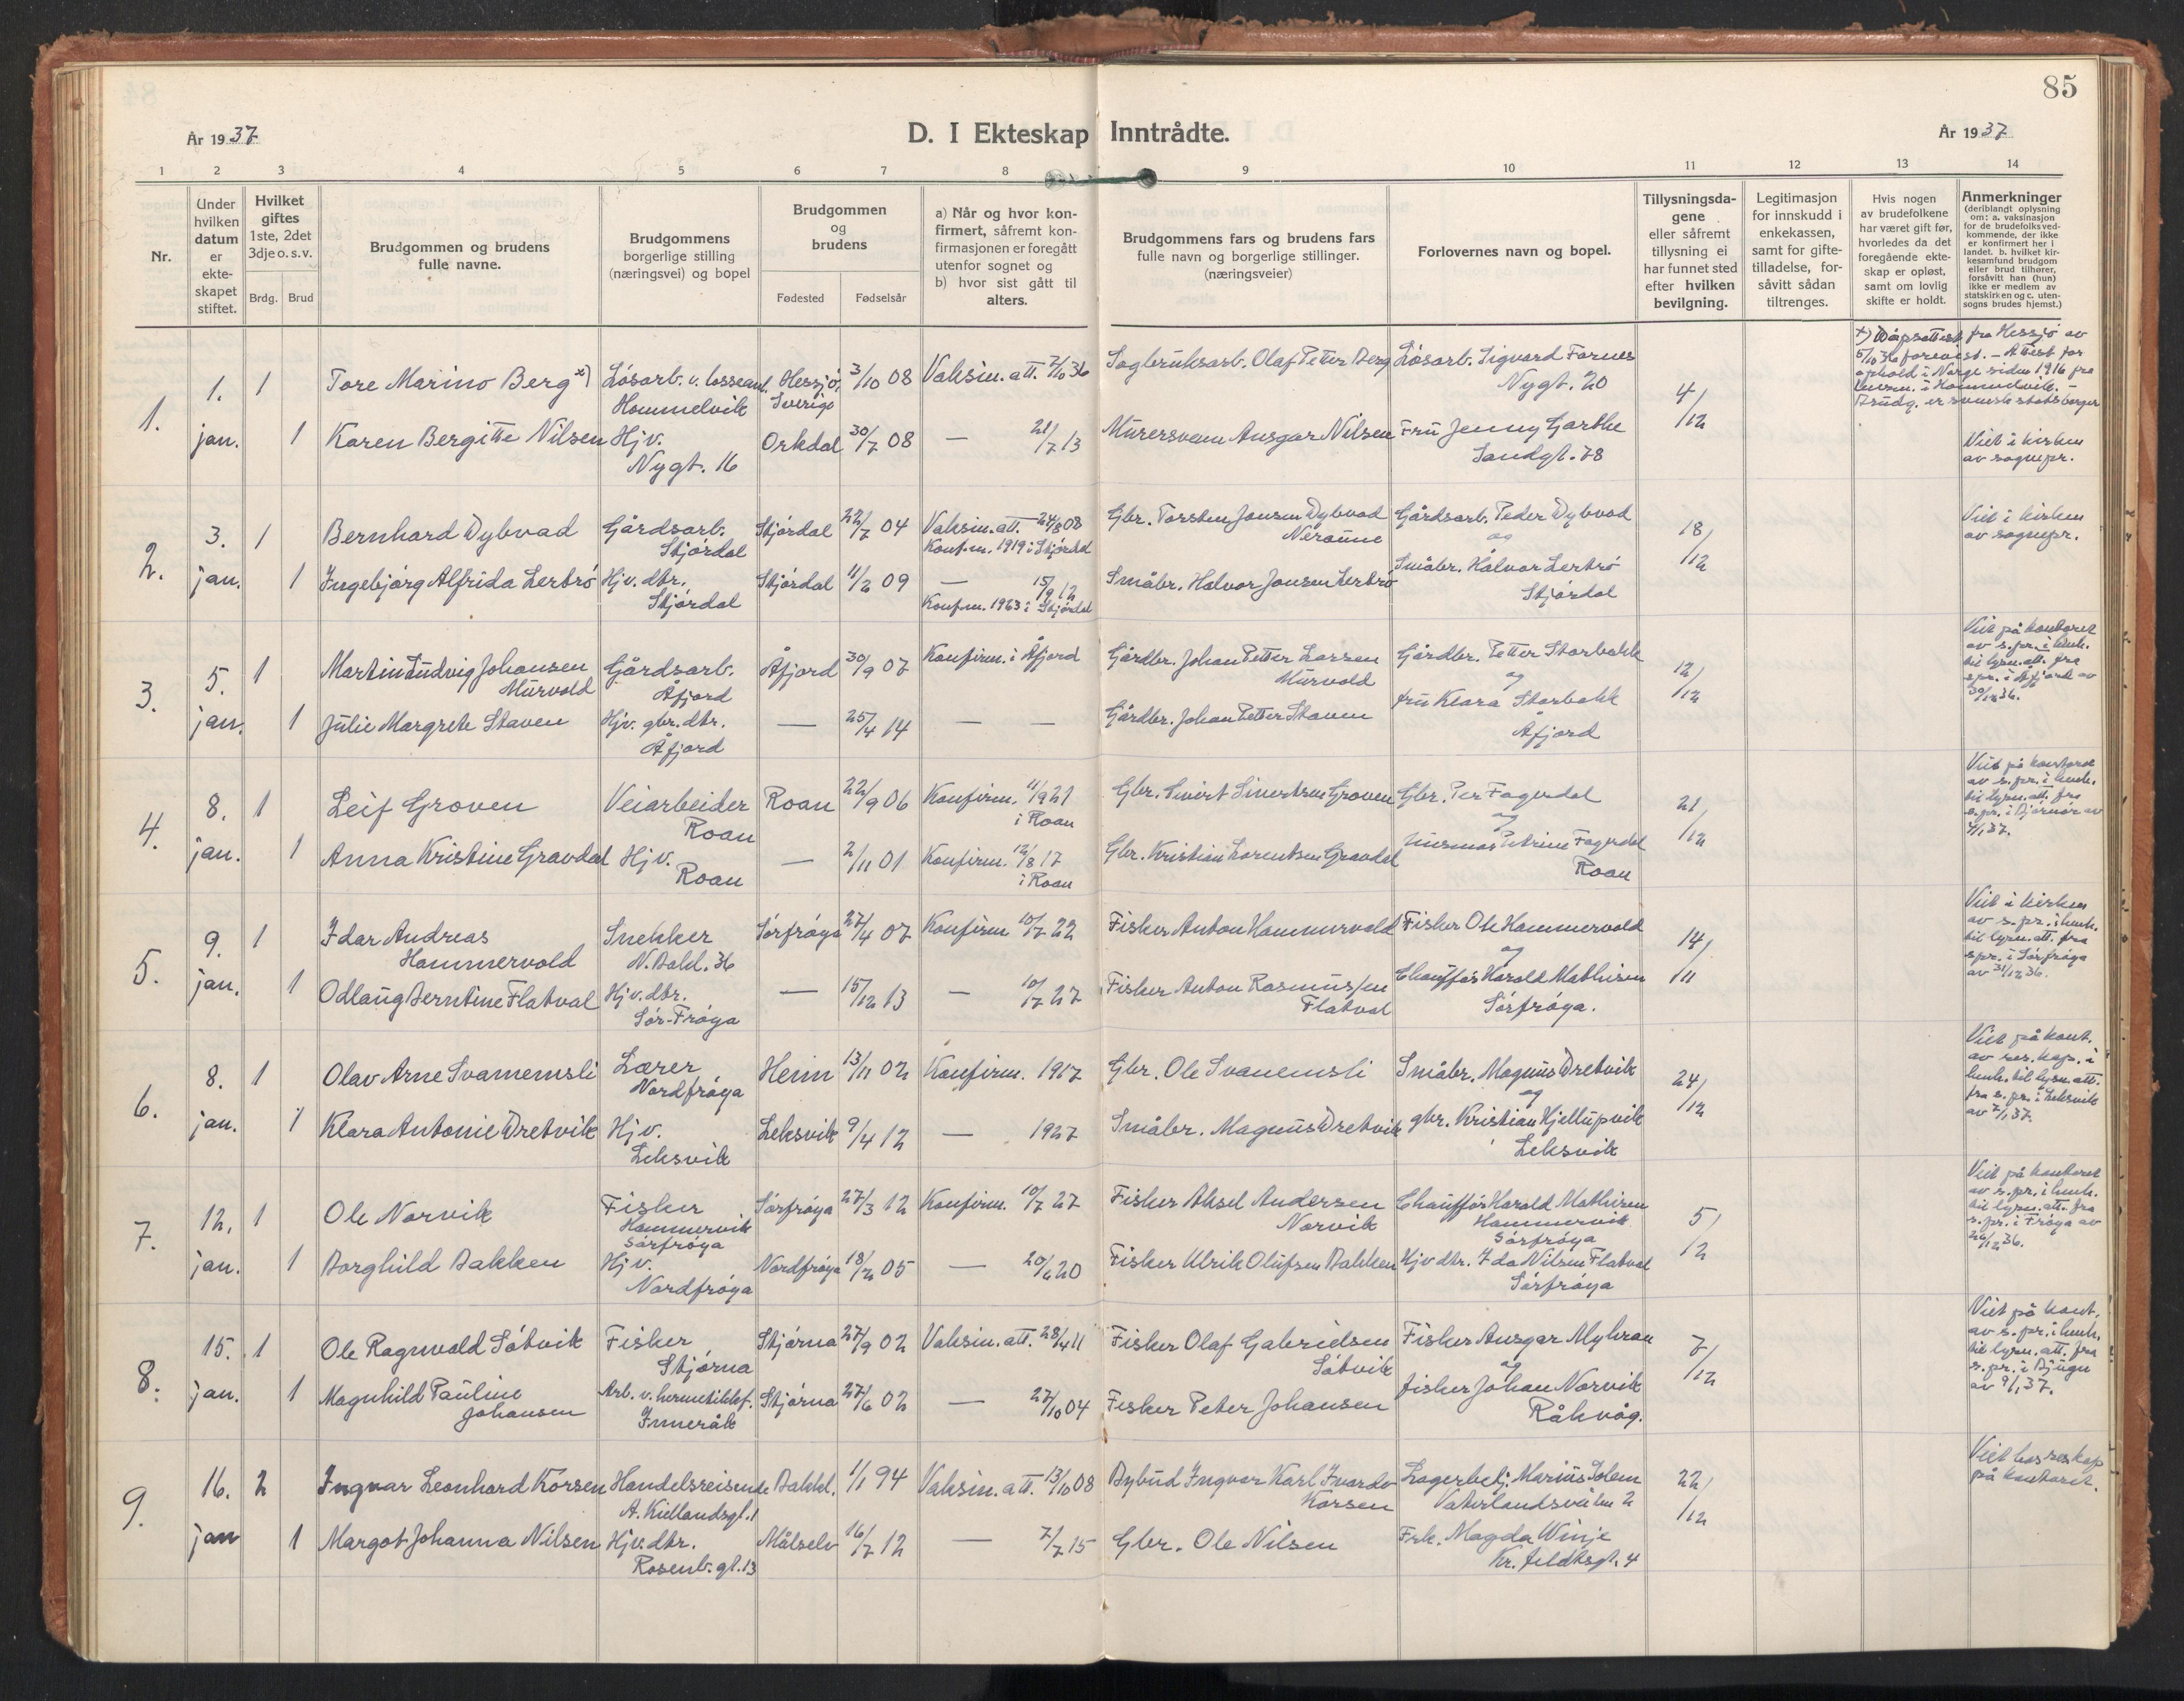 85
År 1937
D. I Ekteskap Inntrådte.
År 1937
1 2 3 4 5 6 7 8 9 10 11 12 13 14
Nr.
Under hvilken datum er ekte-skapet stiftet.
Hvilket giftes 1ste, 2det 3dje o. s. v.
Brdg. Brud
Brudgommen og brudens fulle navne.
Brudgommens borgerlige stilling (næringsvei) og bopel
Brudgommen og brudens
Fødested Fødselsår
a) Når og hvor kon-firmert, såfremt kon-firmasjonen er foregått utenfor sognet og
b) hvor sist gått til alters.
Brudgommens fars og brudens fars fulle navn og borgerlige stillinger. (næringsveier)
Forlovernes navn og bopel.
Tillysningsda-gene eller såfremt tillysning ei har funnet sted efter hvilken bevilgning.
Legitimasjon for innskudd i enkekassen, samt for gifte-tilladelse, for-såvitt sådan tiltrenges.
Hvis nogen av brudefolkene har været gift før, hvorledes da det foregående ekte-skap er opløst, samt om lovlig skifte er holdt.
Anmerkninger (deriblandt oplysning om: a. vaksinasjon for de brudefolksved-kommende, der ikke er konfirmert her i landet. b. hvilket kir-kesamfund brudgom eller brud tilhører, forsåvitt han (hun) ikke er medlem av statskirken og c. uten-sogns brudes hjemst.)
1. 1. jan. 1 Tore Marino Berg x) Løsarb. v. losseanl. Hommelvik Hessjö, Sverige 3/10 08 Vaksin. att. 7/10 36 Sagbruksarb. Olaf Petter Berg Løsarb. Sigvard Fornes Nygt. 20 4/12
x) Dåpsattest fra Hessjö av 5/10 36 forevist. - Attest for ophold i Norge siden 1916 fra lensm. i Hommelvik. - Brudg. er svensk statsborger
1 Karen Bergitte Nilsen Hjv. Nygt. 16 Orkdal 30/7 08 — 21/7 13 Murersvenn Ansgar Nilsen Fru Jenny Garthe Sandgt. 78
Viet i kirken av sognepr.
2. 3. jan. 1 Bernhard Dybvad Gårdsarb. Stjørdal Stjørdal 22/7 04 Vaksin. att. 24/8 08 Konf.m. 1919 i Stjørdal Gbr. Torsten Jonsen Dybvad Gårdsarb. Peder Dybvad og 18/12
Viet i kirken av sognepr.
1 Ingebjørg Alfrida Lerbrø Hjv. dtr. Stjørdal Stjørdal 11/2 09 — 15/9 12 Konf.m. 1923 i Stjørdal Småbr. Halvor Jonsen Lerbrø Småbr. Halvor Lerbrø Stjørdal
3. 5. jan. 1 Martin Ludvig Johansen Murvold Gårdsarb. Åfjord Åfjord 30/9 07 Konfirm. i Åfjord Gårdbr. Johan Petter Larsen Murvold Gårdbr. Petter Storbakk og 12/12
Viet på kontoret av s.pr. i henh. til lysn. att. fra s.pr. i Åfjord av 30/12 36.
1 Julie Margrete Staven Hjv. gbr. dtr. Åfjord — 25/4 14 — — Gårdbr. Johan Petter Staven fru Klara Storbakk Åfjord
4. 8. jan. 1 Leif Groven Veiarbeider Roan Roan 22/9 06 Konfirm. 11/9 21 i Roan Gbr. Sivert Sivertsen Groven Gbr. Per Fagerdal og 21/12
Viet på kontoret av s.pr. i henh. til lysn. att. fra s.pr. i Bjørnør av 4/1 37.
1 Anna Kristine Gravdal Hjv. Roan — 2/11 01 Konfirm. 12/8 17 i Roan Gbr. Kristian Lorentsen Gravdal Petrine Fagerdal Roan
5. 9. jan. 1 Idar Andreas Hammervold Snekker N. Bakl. 36 Sørfrøya 27/4 07 Konfirm 10/7 22 Fisker Anton Hammervold Fisker Ole Hammervold og 14/11
Viet i kirken av s.pr. i henh. til lysn. att. fra s.pr. i Sørfrøya av 31/12 36.
1 Odlaug Berntine Flatval Hjv. dtr. Sør-Frøya — 15/12 13 — 10/7 27 Fisker Anton Rasmussen Flatval Chauffør Harald Mathisen Sørfrøya.
6. 8. jan. 1 Olav Arne Svanemsli Lærer Nordfrøya Heim 13/11 02 Konfirm. 1917 Gbr. Ole Svanemsli Småbr. Magnus Dretvik og 24/12
Viet på kont. av res. kap. i henh. til lysn. att. fra s.pr. i Leksvik av 7/1 37.
1 Klara Antonie Dretvik Hjv. Leksvik Leksvik 9/4 12 — 1927 Småbr. Magnus Dretvik gbr. Kristian Kjellupvik Leksvik
7. 12. jan. 1 Ole Norvik Fisker Hammervik Sørfrøya Sørfrøya 27/3 12 Konfirm. 10/7 27 Fisker Aksel Andersen Norvik Chauffør Harald Mathisen Hammervik Sørfrøya 5/12
Viet på kontoret av s.pr. i henh. til lysn. att. fra s.pr. i Frøya av 26/12 36.
1 Borghild Bakken Hjv. Nordfrøya Nordfrøya 18/2 05 — 20/6 20 Fisker Ulrik Olufsen Bakken Hjv dtr. Ida Nilsen Flatval Sørfrøya
8. 15. jan. 1 Ole Ragnvald Søtvik Fisker Stjørna Stjørna 27/9 02 Vaksin. att. 28/4 11 Fisker Olaf Gabrielsen Søtvik Fisker Ansgar Myhran og 7/12
Viet på kont. av s.pr. i henh. til lysn. att. fra s.pr. i Bjugn av 9/1 37.
1 Magnhild Pauline Johansen Arb. v. hermetikkf. Stjørna 27/6 02 — 27/10 04 Fisker Peter Johansen fisker Johan Norvik Råkvåg.
9. 16. jan 2 Ingvar Leonhard Korsen Handelsreisende A. Kiellandsgt. 1 Bakkl. 1/1 94 Vaksin. att. 13/10 08 Bybud Ingvar Karl Korsen Lagerbetj. Marius Solem Vaterlandsveien 2 22/12
Viet hos reskap på kontoret.
1 Margot Johanna Nilsen Hjv. dtr. Rosenb. gt. 13 Målselv 16/7 12 — 7/7 15 Gbr. Ole Nilsen Frk. Magda Winje